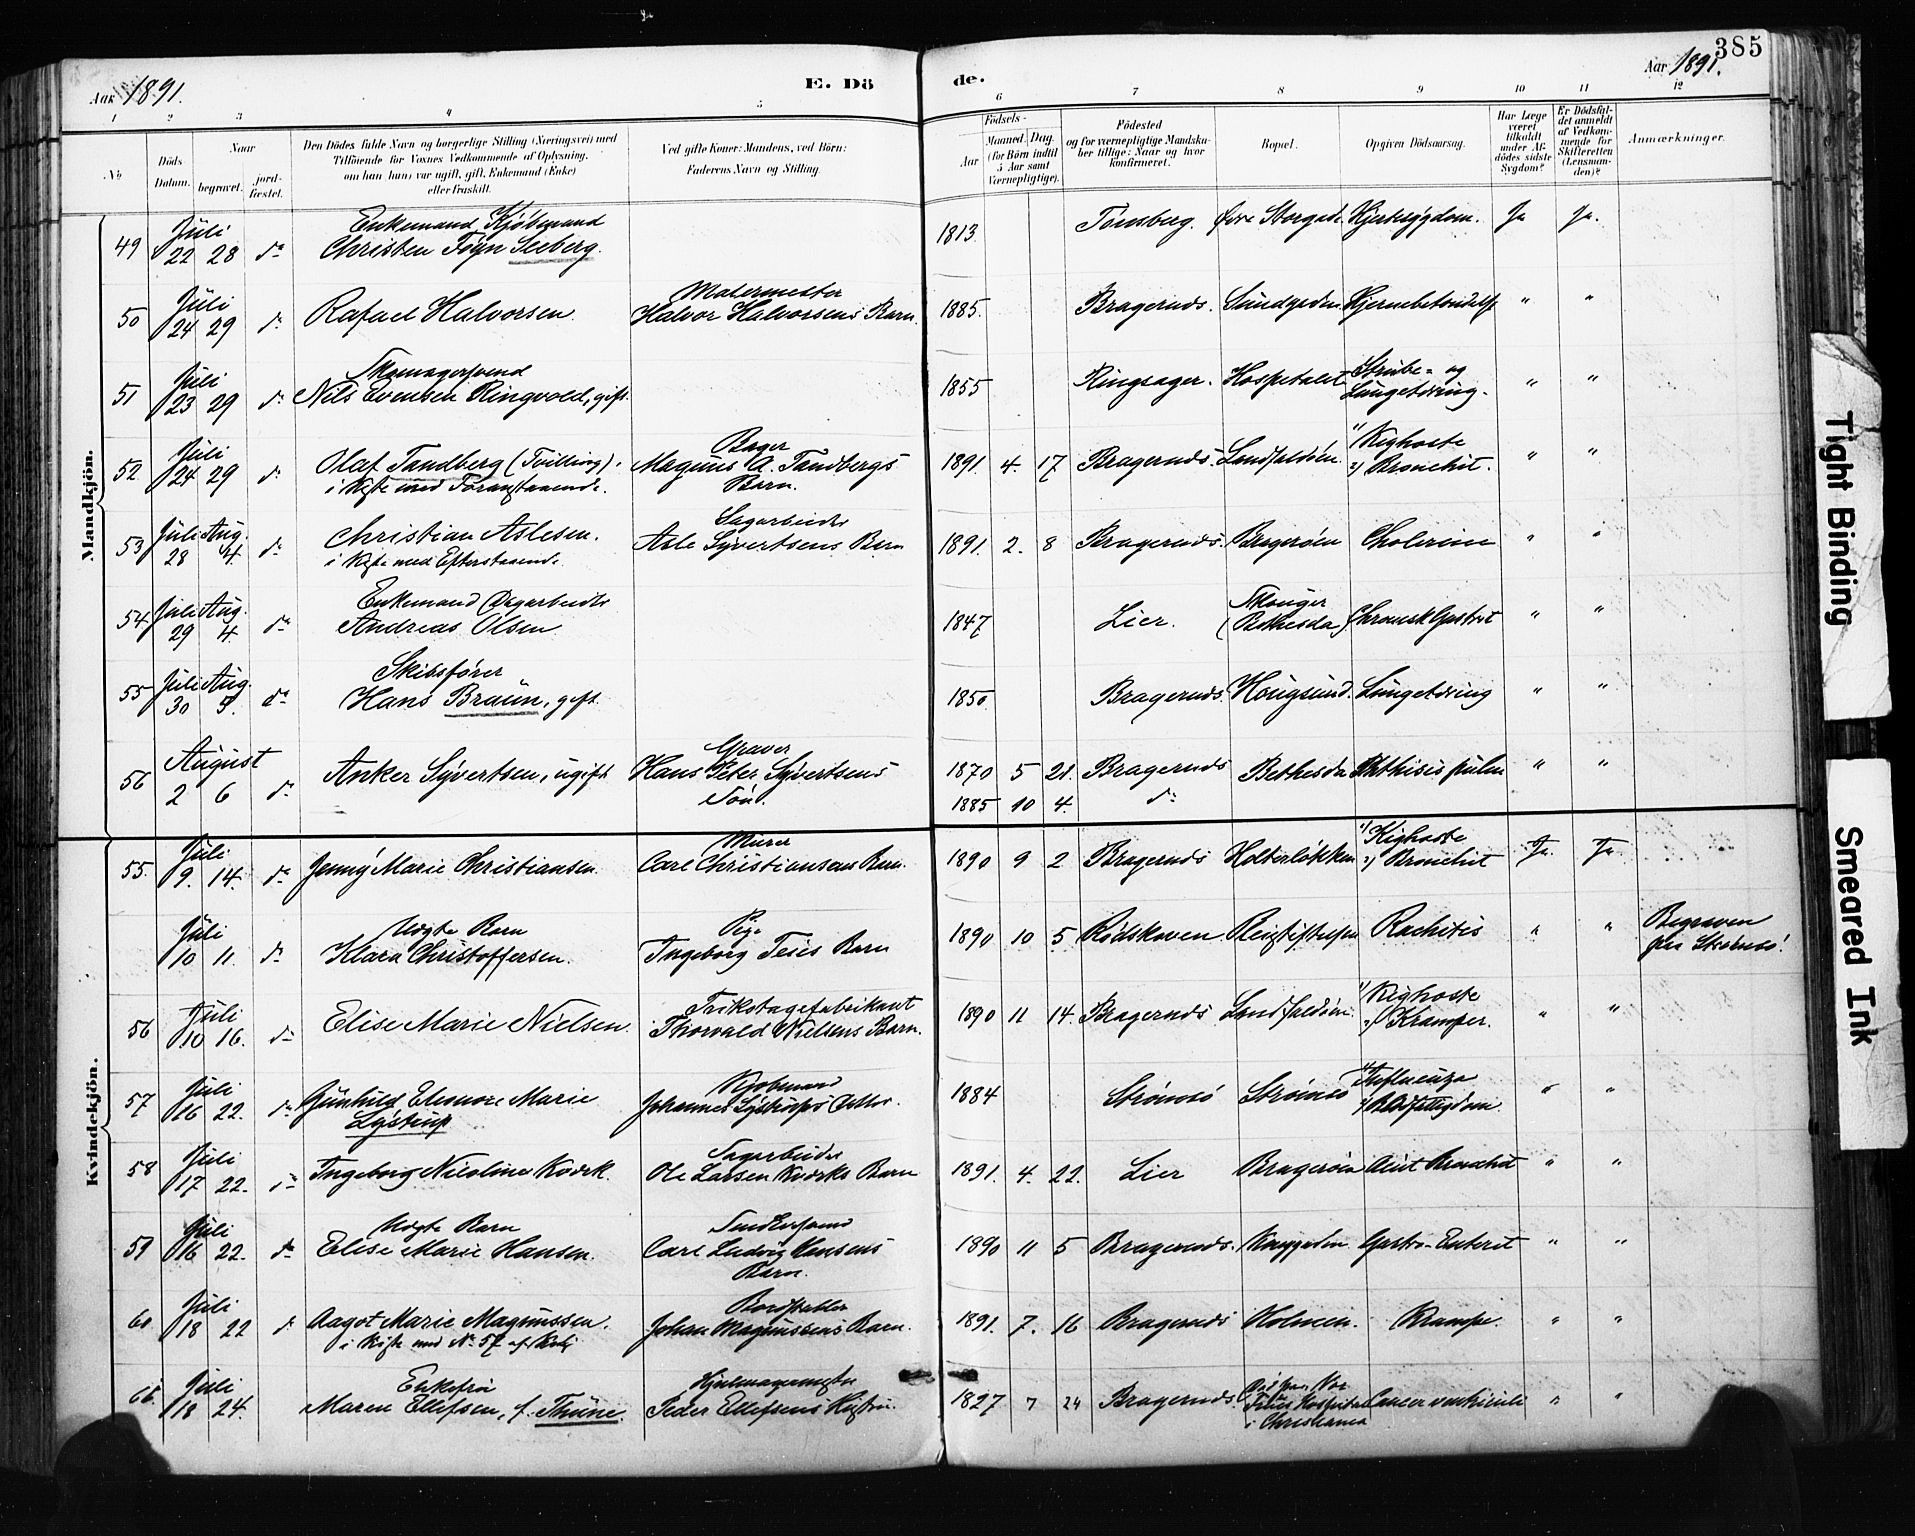 385
Aar 1891.
E. Dö
de.
Aar 1891.
1 2 3 4 5 6 7 8 9 10 11 12
No
Döds Datum.
Naar
begravet.
jordfæstet.
Den Dödes fulde Navn og borgerlige Stilling (Næringsvei) med
Tilföiende for Voxnes Vedkommende af Oplysning,
om han (hun) var ugift, gift, Enkemand (Enke)
eller fraskilt.
Ved gifte Koner: Mandens, ved Börn:
Faderens Navn og Stilling.
Födsels-
Aar
Maaned. Dag.
(for Börn indtil
5 Aar samt
Værnepligtige).
Födested
og for værnepligtige Mandska-
ber tillige: Naar og hvor
konfirmeret.
Bopæl.
Opgiven Dödsaarsag.
Har Læge
været
tilkaldt
under Af-
dödes sidste
Sygdom?
Er Dödsfal-
det anmeldt
af Vedkom-
mende for
Skifteretten
(Lensman-
den)?
Anmærkninger.
Mandkjön.
Enkemand, Kjöbmand
49 Juli 22 28 do Christen Föyn Seeberg. 1813 Tönsberg. Övre Storgade Hjertesygdom. Ja Ja.
Malermester
50 Juli 24 29 do Rafael Halvorsen. Halvor Halvorsens Barn. 1885. Bragernæs. Lundgaden " "
Skomagersvend
51 Juli 23 29 do Nils Evensen Ringvold, gift. 1855 Ringsager. Hospitalet Strube- og Lungetæring. " "
Bager
52 Juli 24 29 do Olaf Tandberg (Tvilling). Magnus A. Tandbergs 1891. 4. 17 Bragernæs. Landfaldöen 1) Kighoste 2) Bronchit. " "
i Kiste med Foranstaaende. Barn.
Sagarbeider
53 Juli 28 Aug. 4. do Christian Aslesen. Asle Syvertsens Barn 1891. 2. 8 Bragernæs. Bragerøen Cholerine " "
i Kiste med Efterstaaende.
Enkemand Dagarbeider
54 Juli 29 Aug. 4 do Andreas Olsen 1847 Lier. Skouger (Bethesda) Chronisk Gastrit " "
Skibsfører
55 Juli 30 Aug. 5. do Hans Braun, gift. 1850. Bragernæs. Hougsund. Lungetæring " "
Graver
56 August 2 6 do Anker Syvertsen, ugift Hans Peter Syvertsens 1870 5 21. Bragernæs Bethesda Phthisis pulm " "
Sön. 1885 10 4. do
Kvindekjön.
Murer
55. Juli 9. 14. do Jenny Marie Christiansen. Carl Christiansens Barn. 1890 9 2 Bragernæs Holterløkken 1) Kighoste 2) Bronchit Ja Ja
Uægte Barn Pige
Juli 10 11. do Klara Christoffersen. Ingeborg Teies Barn 1890 10 5 Rødskoven Rachitis " " Begraven paa Strømsö.
Trikotagefabrikant
56 Juli 10 16. do Elise Marie Nielsen. Thorvald Nielsens Barn. 1890 11 14. Bragernæs Landfaldöen. 1) Kighoste 2) Kramper. " "
Kjøbmand
57 Juli 16 22. do Gunhild Eleonore Marie Johannes Lystrups Datter. 1884 Strømsö Strömsö 1) Influenza 2) Blodfattigdom. " "
Lystrup
Sagarbeider
58 Juli 17 22. do Ingeborg Nicoline Kværk. Ole Larsen Kværks Barn 1891. 4. 22. Lier Bragerøen Acut Bronchit " "
Uægte Barn
59 Juli 16 22. do Elise Marie Hansen. Carl Ludvig Hansens 1890 11 5 Bragernæs. Gastro-Enterit " "
Barn.
60 Juli 18 22 do Aagot Marie Magnussen. Johan Magnussens Barn. 1891. 7. 16 Bragernæs Holmen. Krampe. " "
i Kiste med No. 57 af Kvkj
Enkefru Hjulmagermester
Juli 18 24. Maren Ellefsen, f. Thune. Peder Ellefsens Hustru. 1827 7 24 Bragernæs. Vor Frues Hospital i Christiania Cancer ventriculi " "
Tight Binding
Smeared Ink